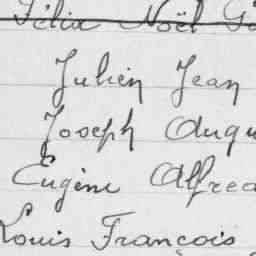 Félix Noël
Julien Jean
Joseph
Eugène Alfred
Louis François